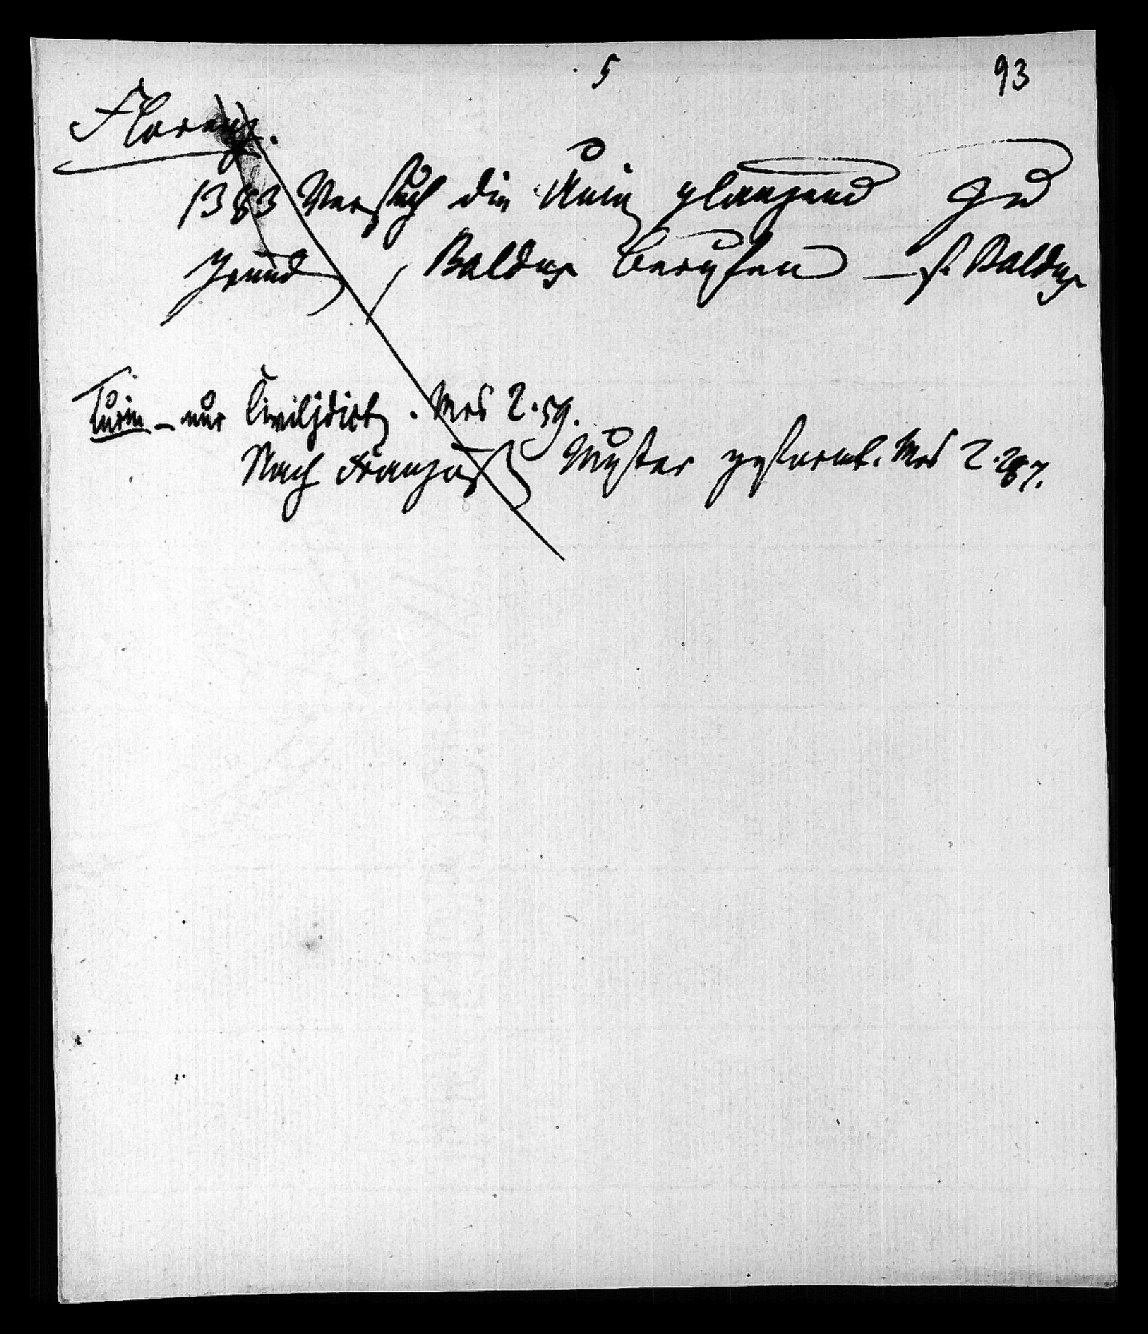 5 93
Florenz.
1383 Versuch die Univ glanzend zu
gründ, Baldus berufen — s. Baldus
Turin – nur Civiljdict. Mrs 2.59.
Nach Französ Muster geformt. Mrs 2.287.